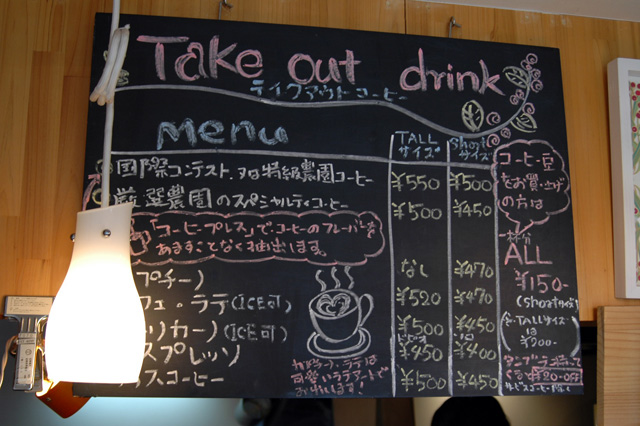 Take out drink
テイクアウトコーヒー
menu
TALL サイズ
shot サイズ
国際コンテスト 特級農園コーヒー ¥550 ¥500
厳選農園のスペシャルティコーヒー ¥500 ¥450
「コーヒープレス」でコーヒーのフレーバーを
あますことなく抽出します。
プチーノ なし ¥470
フェ・ラテ(ICE可) ¥520 ¥470
リカーノ(ICE可) ¥500 ¥450
スプレッソ ¥450 ¥400
イスコーヒー ¥500 ¥450
ラテは
可愛いラテアートで
コーヒー豆
をお買い上げ
の方は
一杯分
ALL
¥150-
(shotサイズ)
TALLサイズ
は
¥200-
¥20-OFF